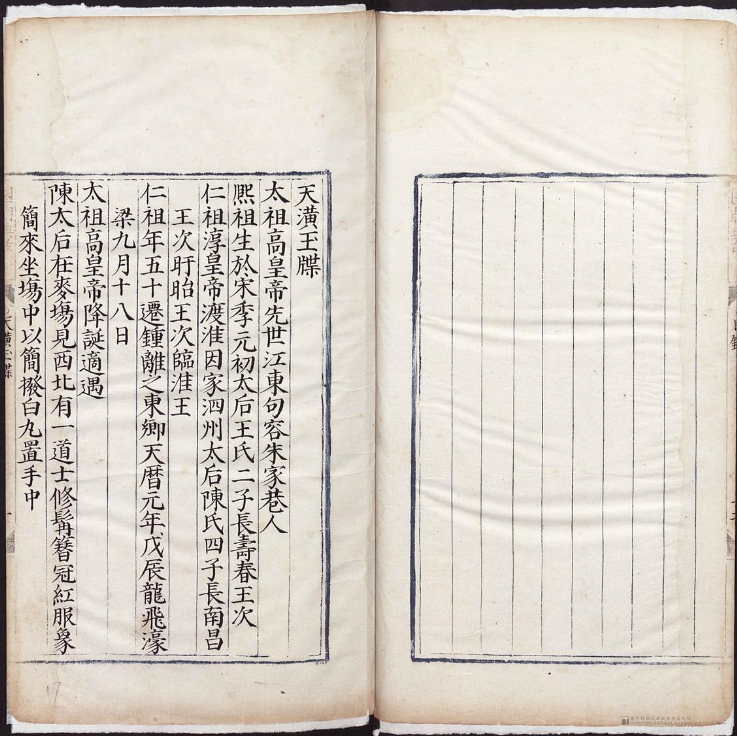 天潢玉牒
太祖高皇帝先世江東句容朱家巷人
熙祖生於宋季元初太后王氏二子長壽春王次
仁祖淳皇帝渡淮因家泗州太后陳氏四子長南昌
王次盱眙王次臨淮王
仁祖年五十遷鍾離之東鄉天曆元年戊辰龍飛濠
梁九月十八日
太祖高皇帝降誕適遇
陳太后在麥塲見西北有一道士修髯簪冠紅服象
簡來坐塲中以簡撥白丸置手中
天潢玉牒
17